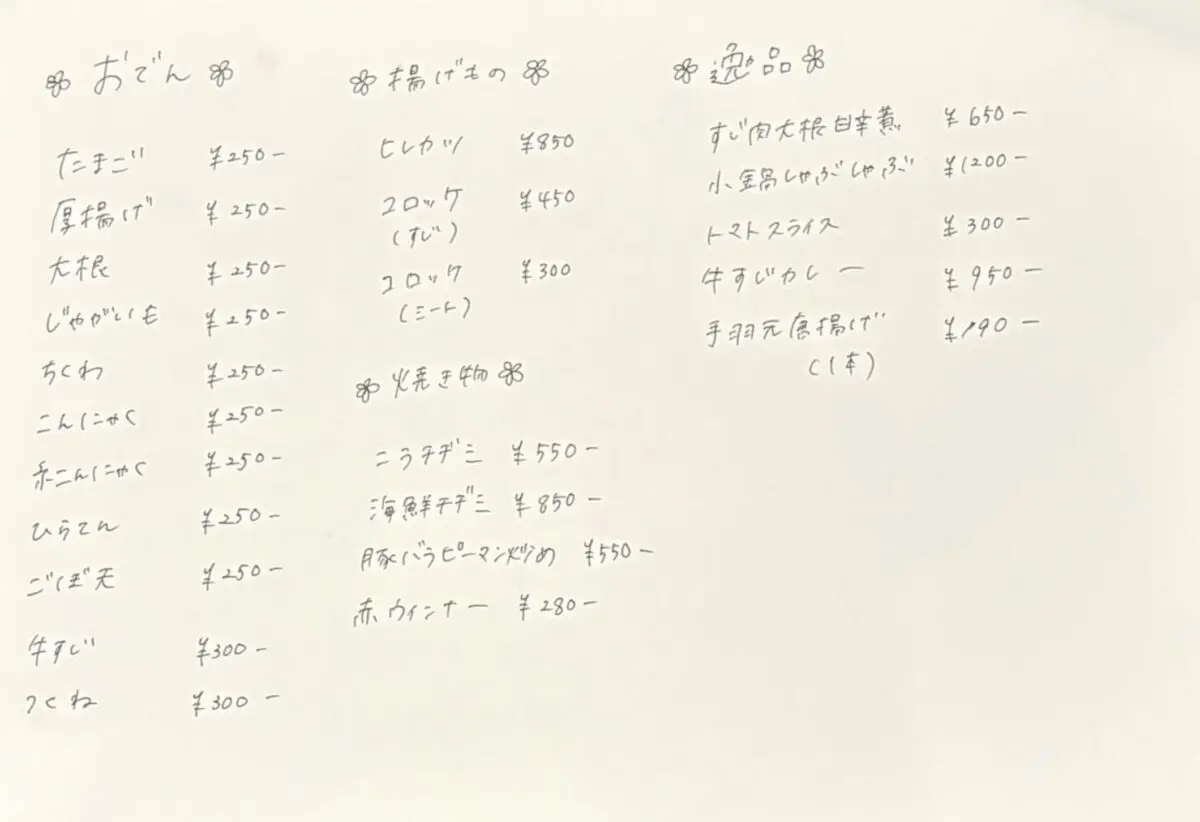 おでん
たまご ¥250-
厚揚げ ¥250-
大根 ¥250-
じゃがいも ¥250-
ちくわ ¥250-
こんにゃく ¥250-
糸こんにゃく ¥250-
ひらてん ¥250-
ごぼ天 ¥250-
牛すじ ¥300-
つくね ¥300-
揚げもの
ヒレカツ ¥850
コロッケ ¥450
(すじ)
コロック ¥300
(ミート)
焼き物
ニラチヂミ ¥550-
海鮮チヂミ ¥850-
豚バラピーマン炒め ¥550-
赤ウィンナー ¥280-
逸品
すじ肉大根甘辛煮 ¥650-
小鍋しゃぶしゃぶ ¥1200-
トマトスライス ¥300-
牛すじカレー ¥950-
手羽元唐揚げ ¥190-
(1本)